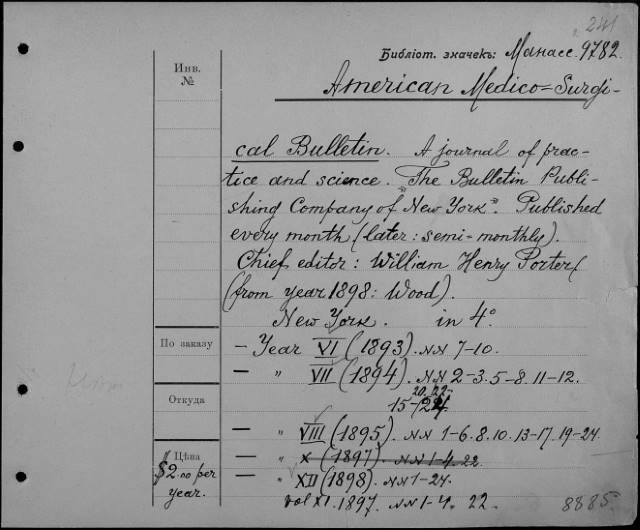 241
Библіот. значекъ: Манасс. 9782.
Инв. №
American Medico=Surgi-
cal Bulletin. A journal of prac-
tice and science. "The Bulletin Publi-
shing Company of New York". Published
every month (later: semi-monthly).
Chief editor: William Henry Porter
(from year 1898: Wood).
New York. in 4°.
По заказу
— Year VI (1893). NN 7-10.
— " VII (1894). NN 2-3. 5-8. 11-12.
Откуда
20. 22-
15-24
— " VIII (1895). NN 1-6. 8. 10. 13-17. 19-24.
Цѣна
— " X (1897). NN 1-4. 22
$2.00 per
year.
— " XII (1898). NN 1-24.
vol XI. 1897. NN 1-4. 22.
8885